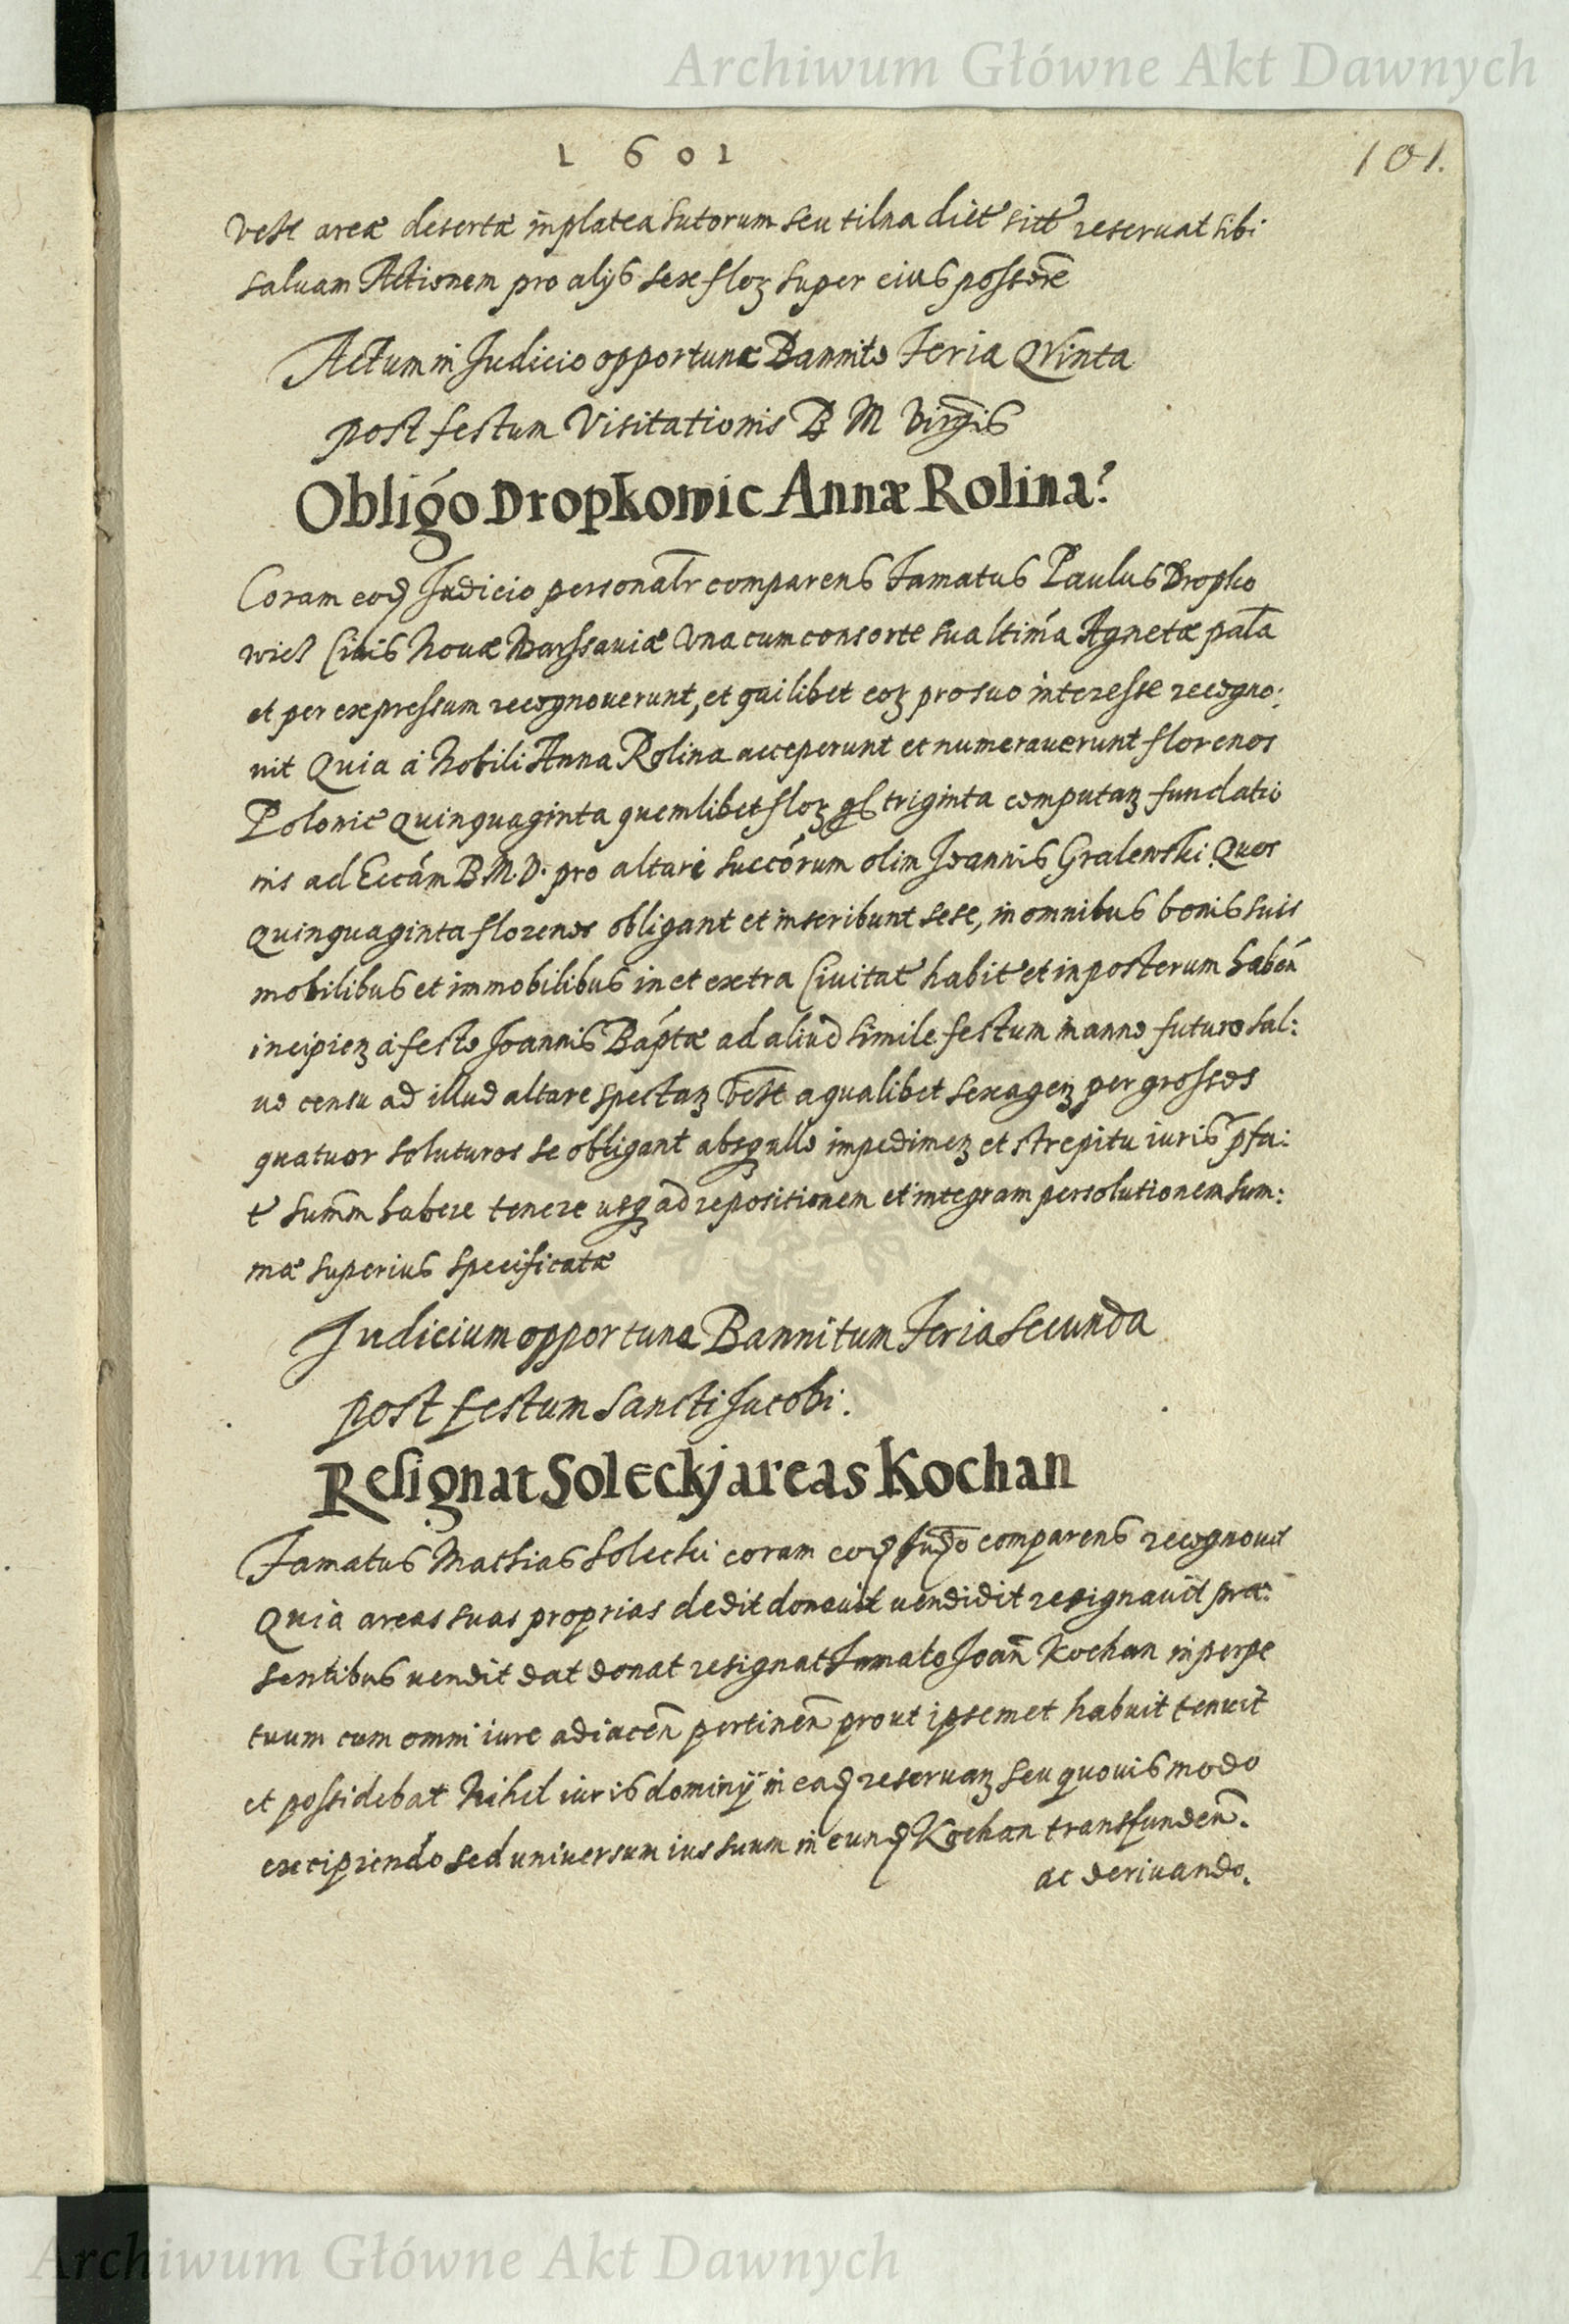 Archiwum Główne Akt Dawnych
1601
101.
areæ desertæ in platea Sutorum seu tilna reseruat sibi
saluam Actionem pro alijs sex floz super eius possore
Actum in Judicio opportune Bannito Feria Qvinta
post festum Visitationis B M Virgis
Obligo Dropkowic Annæ Rolina
Coram eod Judicio personalr comparens Famatus Paulus Dropko
wicz Ciuis Nouæ Warssauiæ Vna cum consorte sua ltima Agnetæ pala
et per expressum recognouerunt, et quilibet eoz pro suo interesse recogno:
uit Quia á Nobili Anna Rolina acceperunt et numerauerunt florenos
Polonic Quinquaginta quemlibet floz triginta computaz fundatio
nis ad Eccam B.M.V. pro altari olim Joannis Gralewski Quos
Quinquaginta florenos obligant et inscribunt sese, in omnibus bonis suis
mobilibus et immobilibus in et extra Ciuitat habit et in posterum haben
incipiez á festo Joannis Baptæ ad aliud simile festum in anno futuro sal:
uo censu ad illud altare spectaz a qualibet sexagez per grossos
quatuor soluturos se obligant absq ullo impedimez et strepitu iuris pfa:
t summ habere tenere usq ad repositionem et integram persolutionem sum:
mæ superius specificatæ
Judicium opportune Bannitum Feria Secunda
post festum Sancti Jacobi.
Resignat Soleckj areas Kochan
Famatus Mathias Solecki coram eod Judo comparens recognouit
Quia areas suas proprias dedit donauit uendidit resignauit præ:
sentibus uendit dat donat resignat Famato Joan Kochan in perpe
tuum cum omni iure adiacen pertinen prout ipsemet habuit tenuit
et possidebat Nihil iuris dominÿ in ead reseruaz seu quouis modo
excipiendo sed uniuersum ius suum in eund Kochan transfunden.
ac deriuando.
Archiwum Główne Akt Dawnych